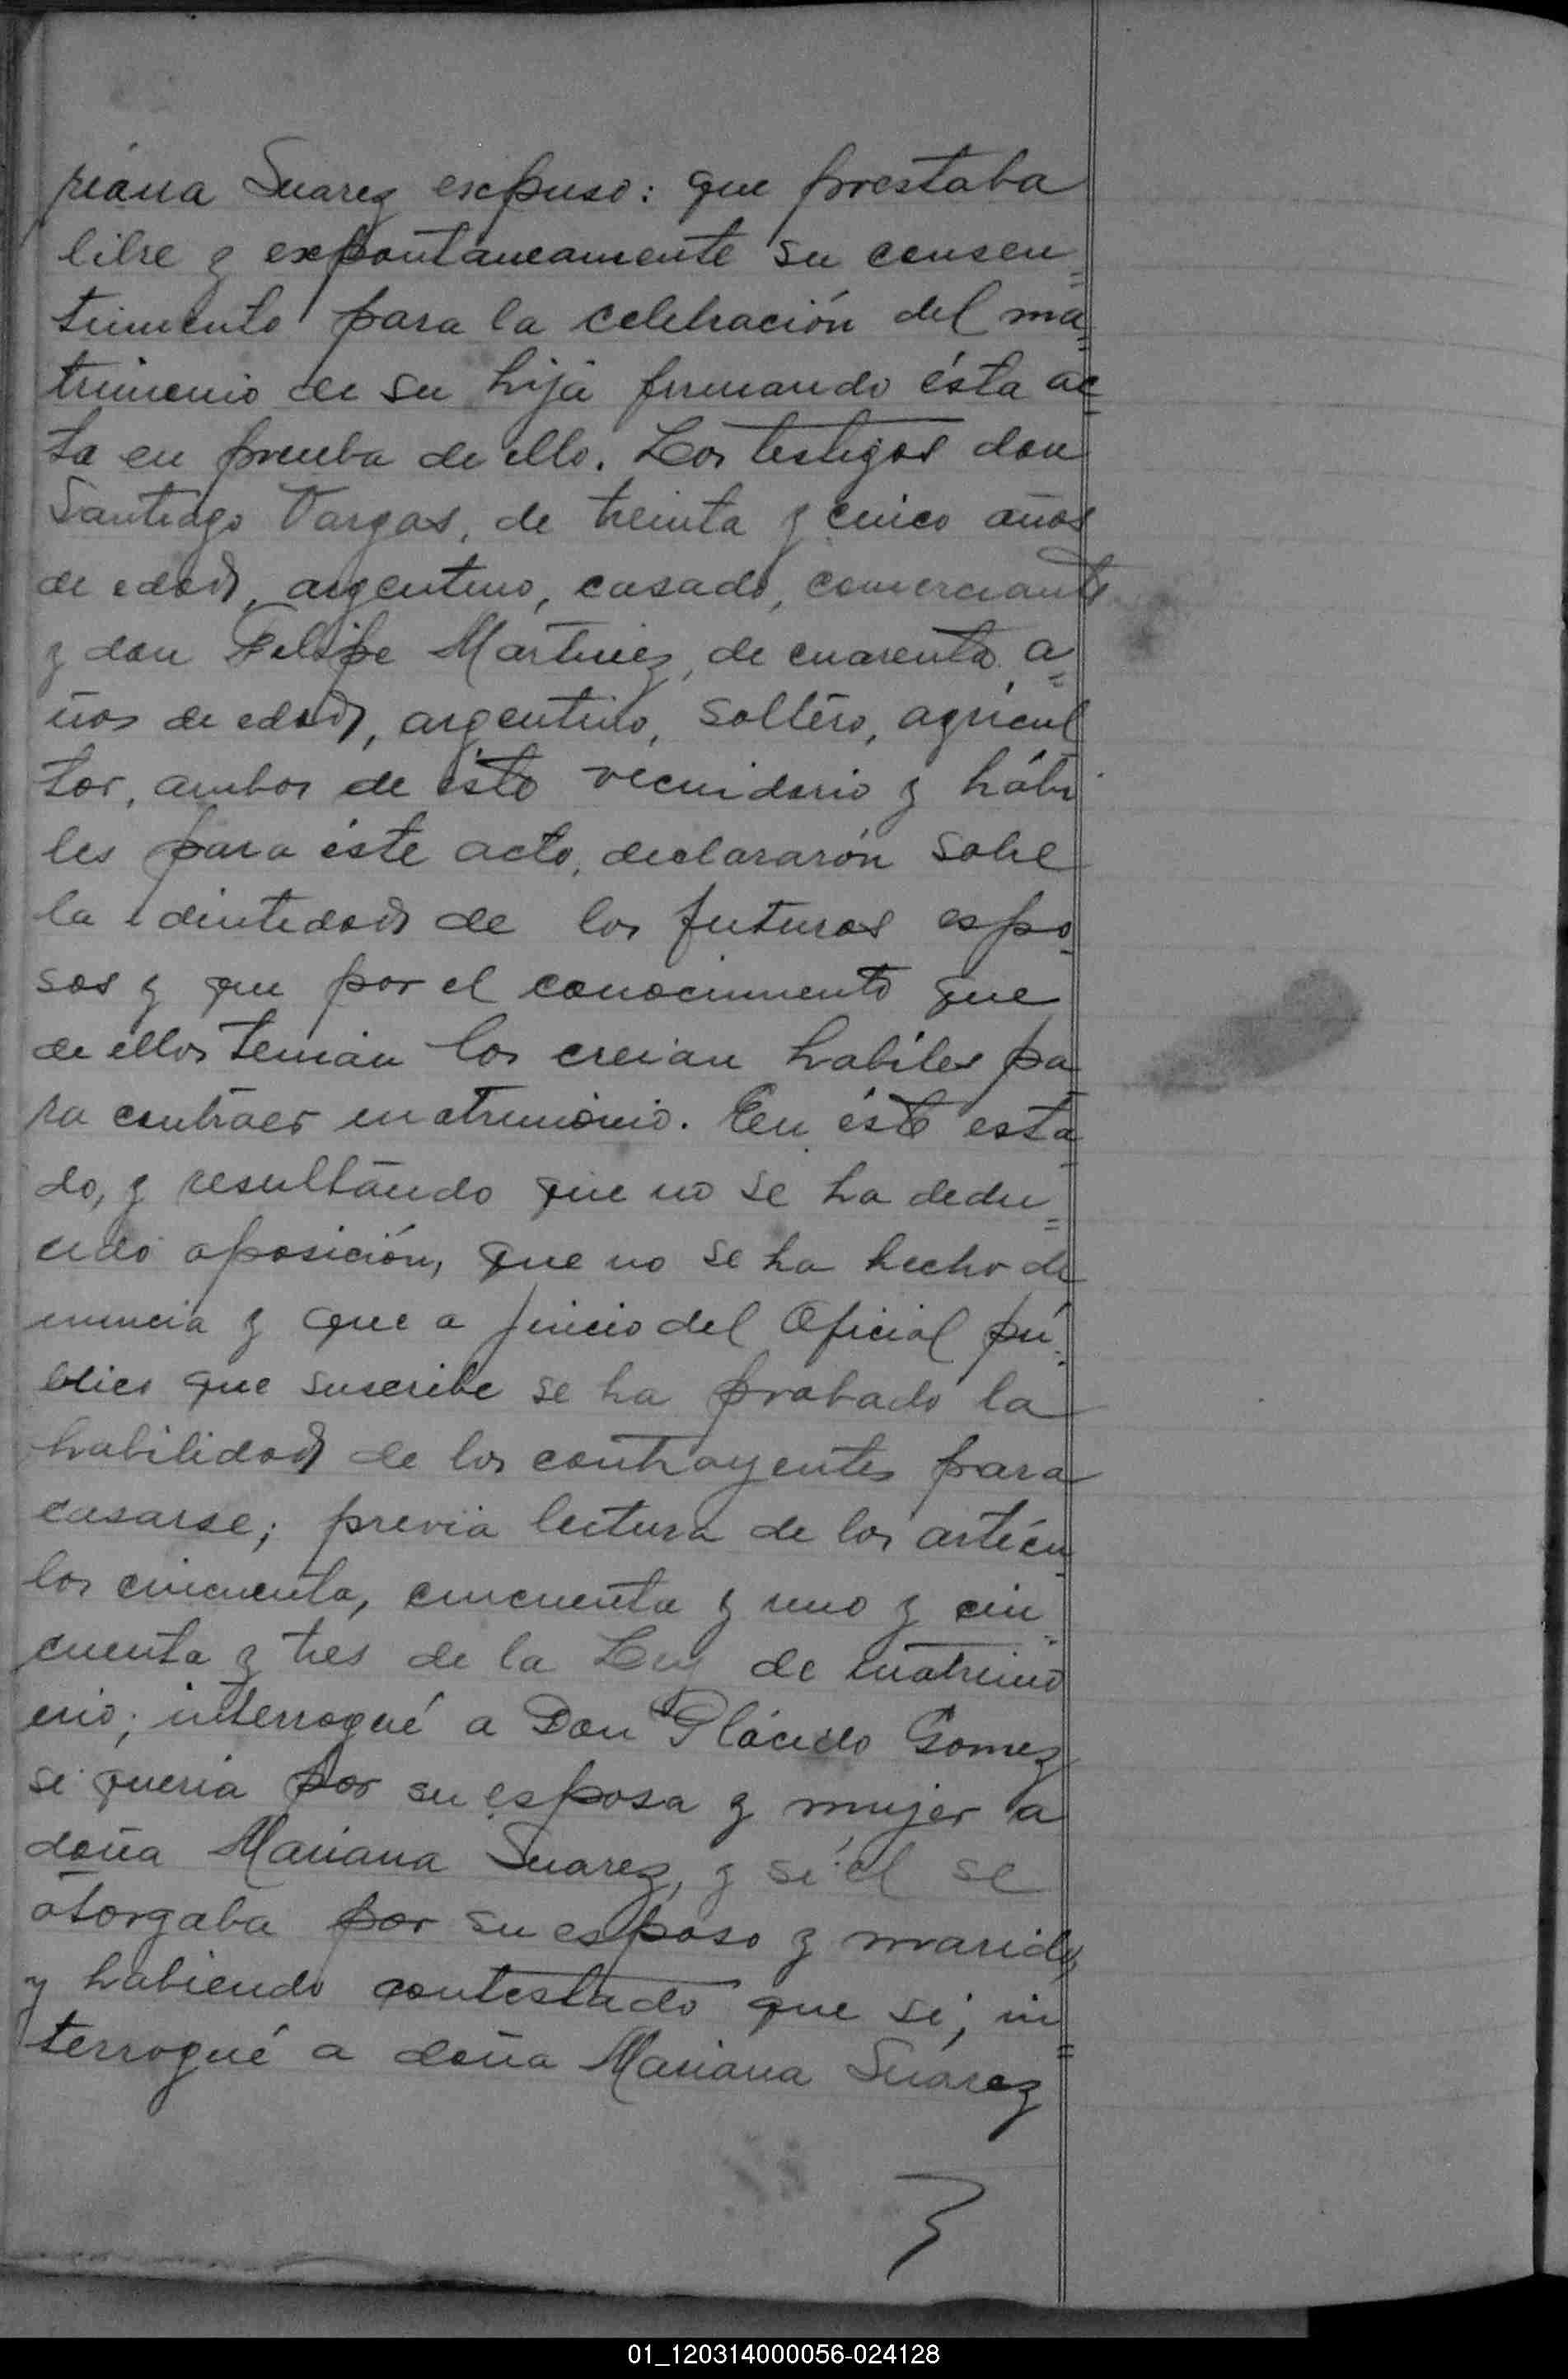 riana Suarez expuso: que prestaba
libre y expontaneamente su consen=
timiento para la celebración del ma=
trimonio de su hija firmando ésta ac=
ta en prueba de ello. Los testigos don
Santiago Vargas, de treinta y cinco años
de edad, argentino, casado, comerciante
y don Felipe Martinez, de cuarenta a=
ños de edad, argentino, soltero, agricul
tor, ambos de éste vecindario y hábi
les para éste acto, declararón sobre
la identidad de los futuros espo-
sos y que por el conocimiento que
de ellos tenian los creian habiles pa-
ra contraer matrimonio. En éste esta-
do, y resultando que no se ha dedu=
cido oposición, que no se ha hecho de
nuncia y que a juicio del Oficial pú-
blico que suscribe se ha probado la
habilidad de los contrayentes para
casarse; previa lectura de los artícu-
los cincuenta, cincuenta y uno y cin-
cuenta y tres de la Ley de matrimo
nio; interrogué a Don Plácido Gomez
si queria por su esposa y mujer a
doña Mariana Suarez, y si él se
otorgaba por su esposo y marido,
y habiendo contestado que si; in=
terrogué a doña Mariana Suárez
01_120314000056-024128